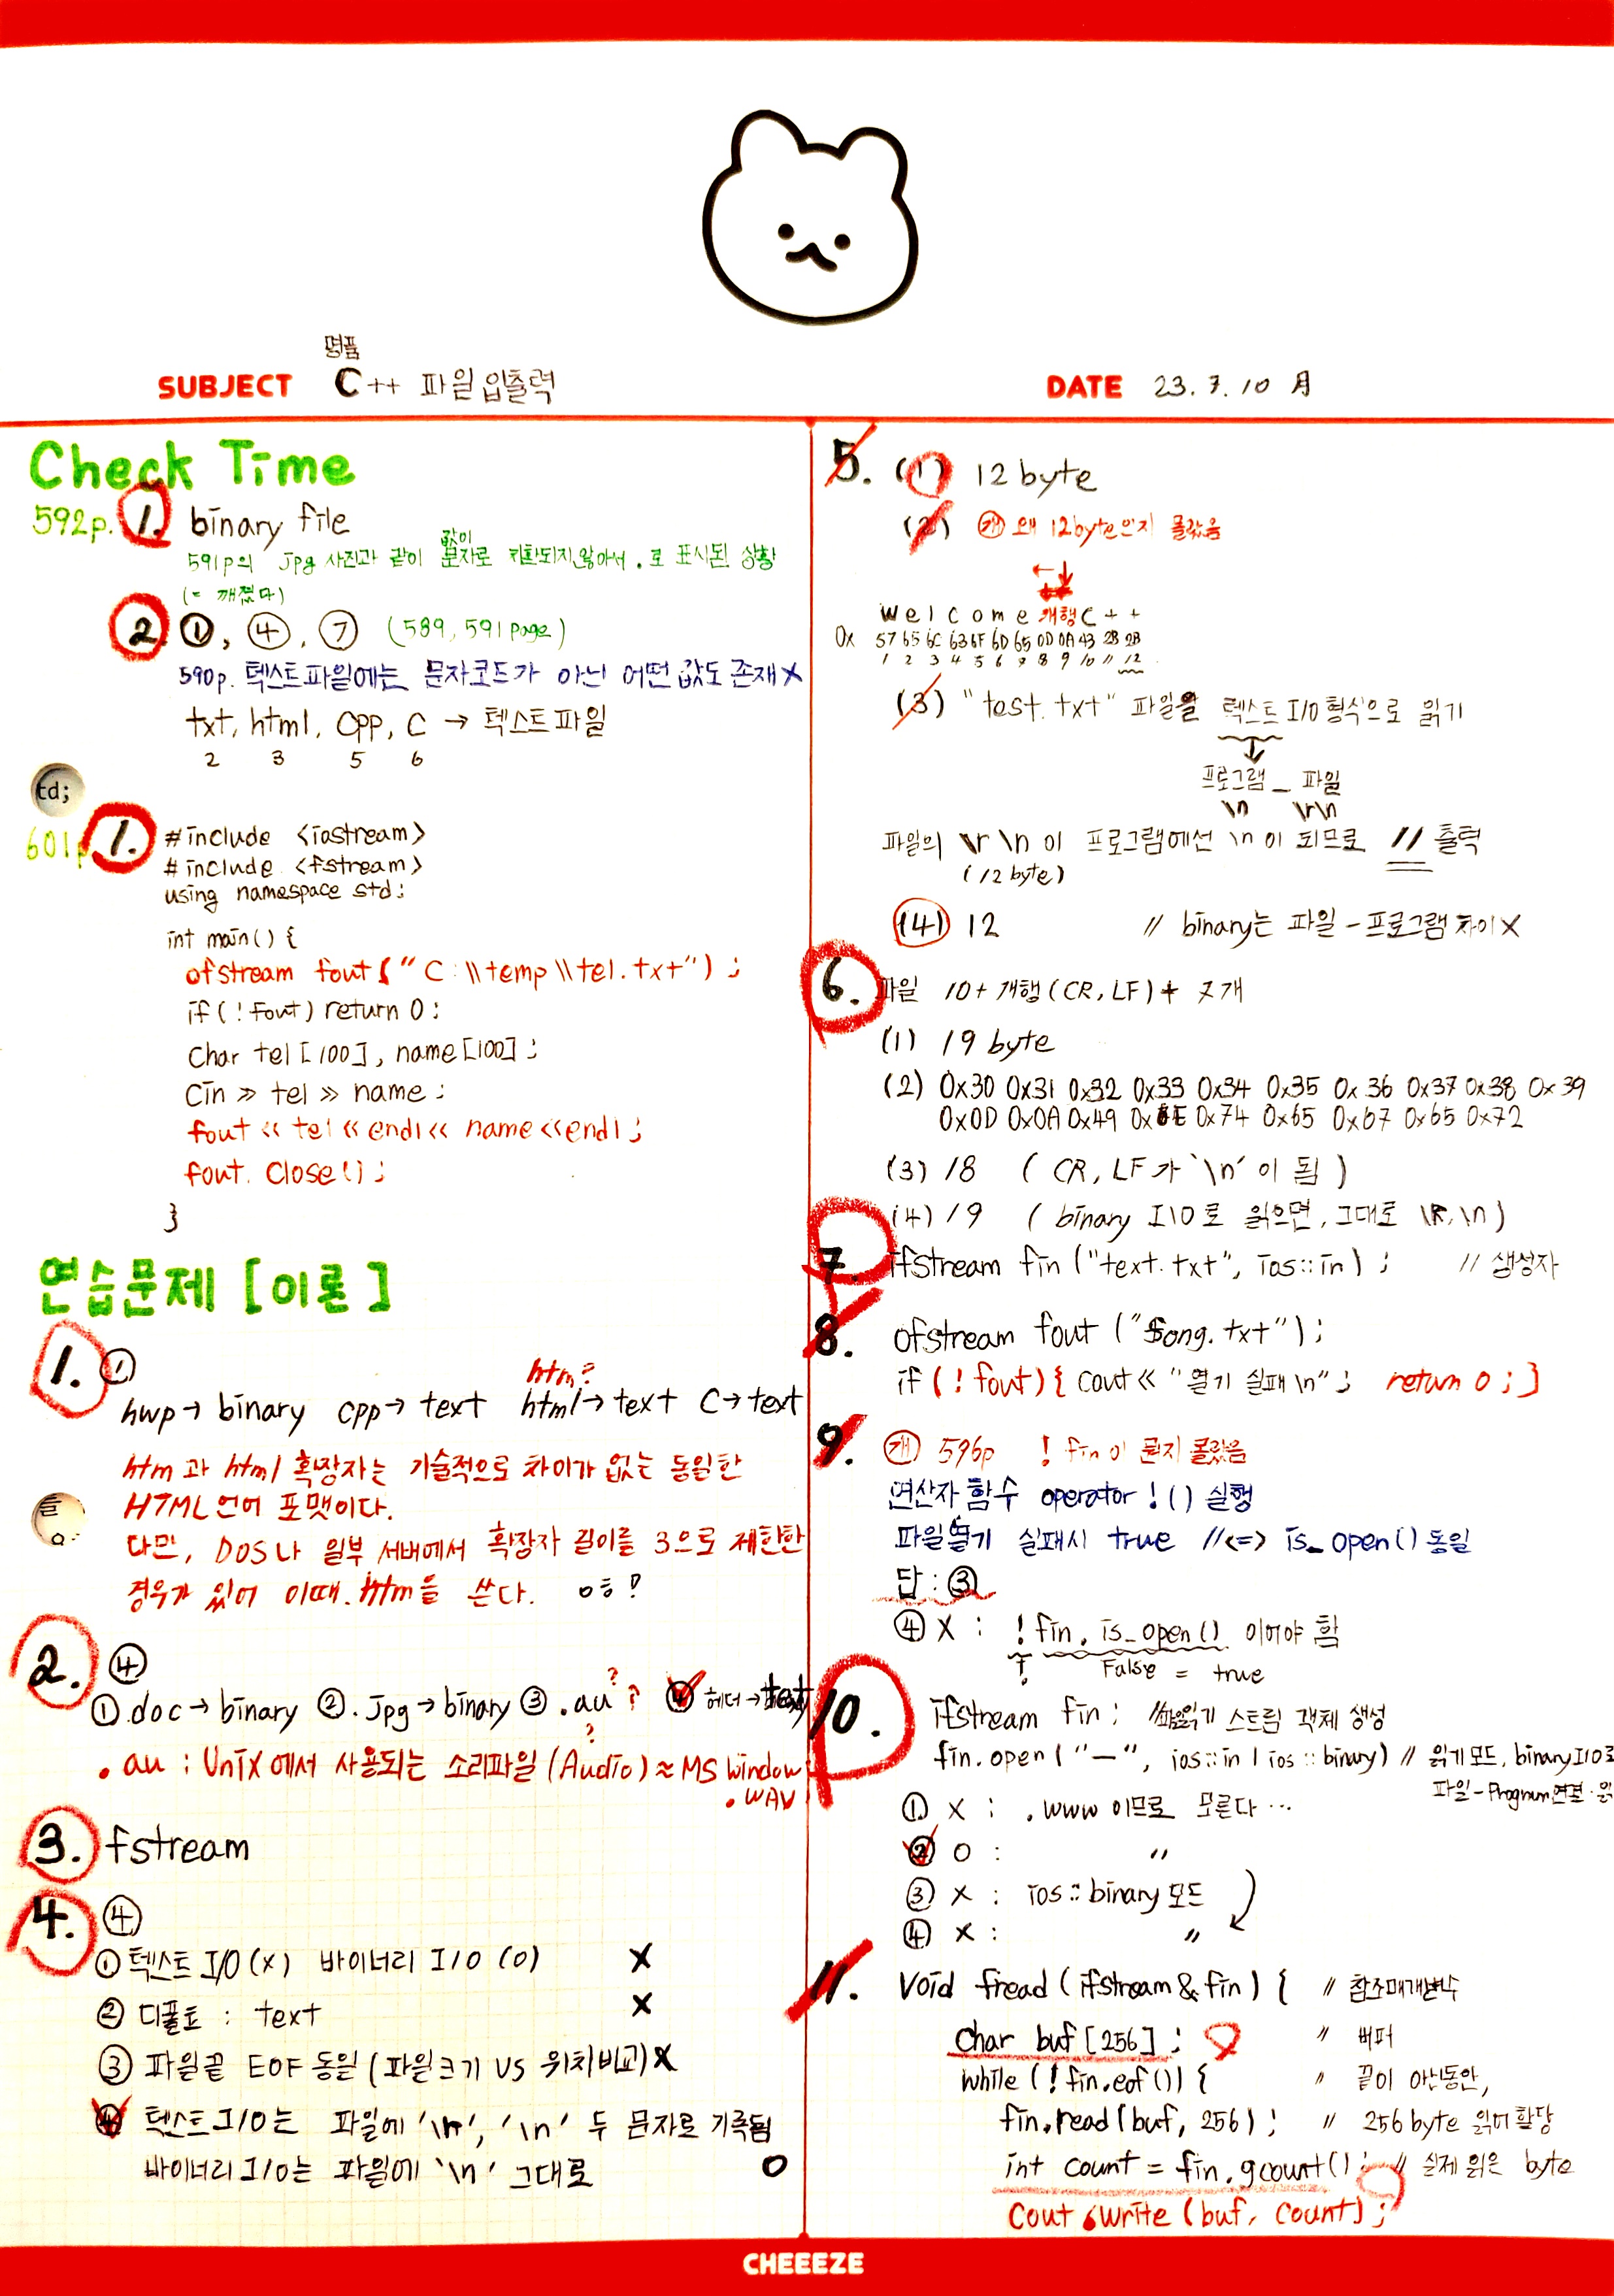 명품
SUBJECT C++ 파일 입출력
DATE 23.7.10 月
Check Time
592p. 1. binary file
591p의 jpg 사진과 같이 값이 문자로 치환되지 않아서 . 로 표시된 상황
(= 깨졌다)
2. ①, ④, ⑦ (589, 591 page)
590p. 텍스트파일에는 문자코드가 아닌 어떤 값도 존재 X
txt, html, cpp, C → 텍스트파일
2 3 5 6
td;
601p 1. #include <iostream>
#include <fstream>
using namespace std;
int main() {
ofstream fout("C:\\temp\\tel.txt");
if(!fout) return 0;
char tel[100], name[100];
Cin >> tel >> name;
fout << tel << endl << name << endl;
fout. close();
}
연습문제 [이론]
1. ①
htm?
hwp → binary cpp → text html → text C → text
htm과 html 확장자는 기술적으로 차이가 없는 동일한
HTML언어 포맷이다.
다만, DOS나 일부 서버에서 확장자 길이를 3으로 제한한
경우가 있어 이때 .htm을 쓴다. 오호!
2. ④
①.doc → binary ②.jpg → binary ③.au? ④ 헤더 → text
.au : Unix에서 사용되는 소리파일 (Audio) ≈ MS Window
.WAV
3. fstream
4. ④
① 텍스트 I/O (X) 바이너리 I/O (O) X
② 디폴트 : text X
③ 파일끝 EOF 동일 (파일크기 VS 위치비교) X
④ 텍스트 I/O는 파일에 '\r', '\n' 두 문자로 기록됨
바이너리 I/O는 파일에 '\n' 그대로 O
5. (1) 12 byte
(2) 개 왜 12byte인지 몰랐음
W e l c o m e 개행 C + +
0x 57 65 6C 63 6F 6D 65 0D 0A 43 2B 2B
1 2 3 4 5 6 7 8 9 10 11 12
(3) "test.txt" 파일을 텍스트 I/O 형식으로 읽기
프로그램 _ 파일
\n \r\n
파일의 \r \n 이 프로그램에선 \n 이 되므로 11 출력
(12 byte)
(4) 12 // binary는 파일 - 프로그램 차이 X
6. 파일 10 + 개행(CR, LF) + 7개
(1) 19 byte
(2) 0x30 0x31 0x32 0x33 0x34 0x35 0x36 0x37 0x38 0x39
0x0D 0x0A 0x49 0x6E 0x74 0x65 0x67 0x65 0x72
(3) 18 (CR, LF가 '\n'이 됨)
(4) 19 (binary I\O로 읽으면, 그대로 \R, \n)
7. ifstream fin("text.txt", ios::in); // 생성자
8. ofstream fout ("song.txt");
if (!fout) { cout << "열기 실패\n"; return 0; }
9. 개 596p !fin이 뭔지 몰랐음
연산자 함수 operator!() 실행
파일열기 실패시 true //<=> is_open() 동일
답 : ③
④ X : !fin.is_open() 이어야 함
False = true
10. ifstream fin; //파일읽기 스트림 객체 생성
fin.open("—", ios::in | ios::binary) // 읽기모드, binary I/O로
파일-Program연결·읽
① X : .www 이므로 모른다...
② O : 〃
③ X : ios::binary 모드
④ X : 〃
11. void fread(ifstream& fin) { // 참조매개변수
char buf[256]; // 버퍼
while(!fin.eof()) { // 끝이 아닌동안,
fin.read(buf, 256); // 256byte 읽어 할당
int count = fin.gcount(); // 실제 읽은 byte
cout.write(buf, count);
CHEEEZE